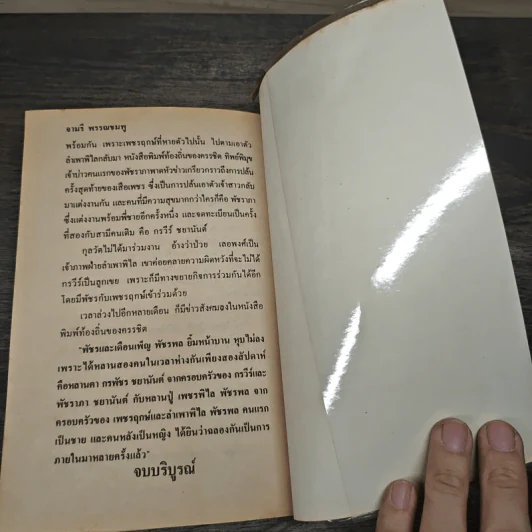 จามรี พรรณชมพู
พร้อมกัน เพราะเพชรฤกษ์ที่หายตัวไปนั้น ไปตามเอาตัว
ลำเพาพิไลกลับมา หนังสือพิมพ์ท้องถิ่นของครรชิต ทิพย์พิมุข
เจ้าบ่าวคนแรกของพัชราภาพาดหัวข่าวเกรียวกราวถึงการปล้น
ครั้งสุดท้ายของเสือเพชร ซึ่งเป็นการปล้นเอาตัวเจ้าสาวกลับ
มาแต่งงานกัน และคนที่มีความสุขมากกว่าใครก็คือ พัชราภา
ซึ่งแต่งงานพร้อมพี่ชายอีกครั้งหนึ่ง และจดทะเบียนเป็นครั้ง
ที่สองกับสามีคนเดิม คือ กรวีร์ ชยานันต์
กุลวัตไม่ได้มาร่วมงาน อ้างว่าป่วย เลอพงศ์เป็น
เจ้าภาพฝ่ายลำเพาพิไล เขาค่อยคลายความผิดหวังที่จะไม่ได้
กรวีร์เป็นลูกเขย เพราะก็มีทางขยายกิจการร่วมกันได้อีก
โดยมีพัชรกับเพชรฤกษ์เข้าร่วมด้วย
เวลาล่วงไปอีกหลายเดือน ก็มีข่าวสังคมลงในหนังสือ
พิมพ์ท้องถิ่นของครรชิต
"พัชรและเดือนเพ็ญ พัชรพล ยิ้มหน้าบาน หุบไม่ลง
เพราะได้หลานสองคนในเวลาห่างกันเพียงสองสัปดาห์
คือหลานตา กรพัชร ชยานันต์ จากครอบครัวของ กรวีร์และ
พัชราภา ชยานันต์ กับหลานปู่ เพชรพิไล พัชรพล จาก
ครอบครัวของ เพชรฤกษ์และลำเพาพิไล พัชรพล คนแรก
เป็นชาย และคนหลังเป็นหญิง ได้ยินว่าฉลองกันเป็นการ
ภายในมาหลายครั้งแล้ว"
จบบริบูรณ์